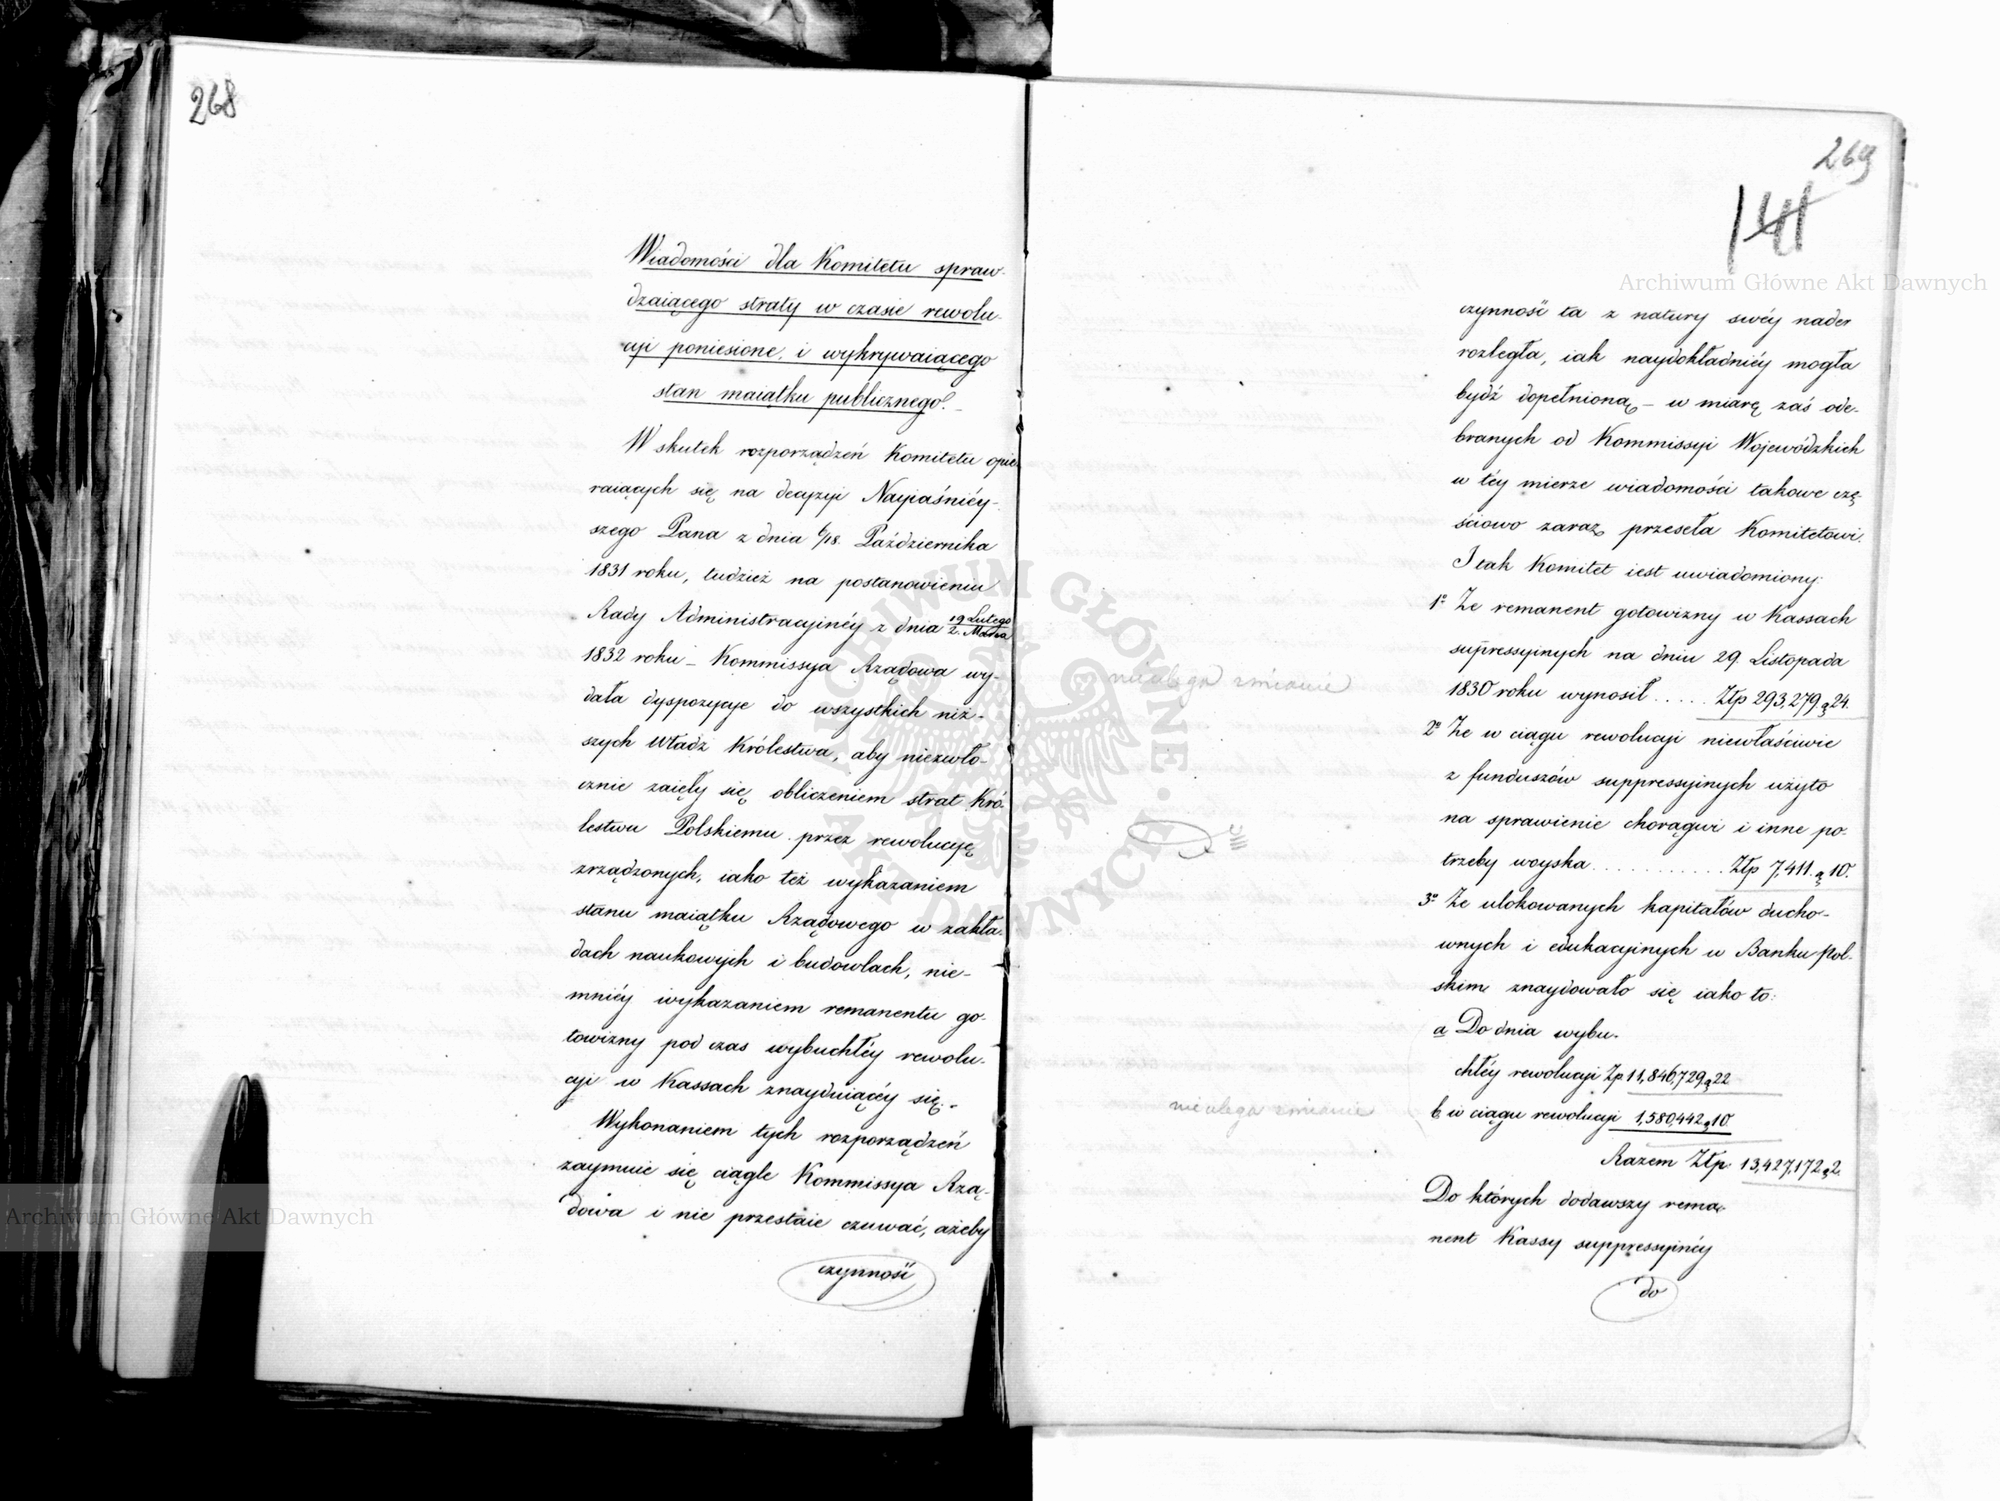 268
Wiadomości dla Komitetu spraw-
dzaiącego straty w czasie rewolu-
cyi poniesione, i wykrywaiącego
stan maiątku publicznego.
W skutek rozporządzeń Komitetu opie-
raiących się na decyzyi Nayiaśniéy-
szego Pana z dnia 6/18. Października
1831 roku, tudzież na postanowieniu
Rady Administracyinéy z dnia 19 Lutego / 2. Marca
1832 roku – Kommissya Rządowa wy-
dała dyspozycye do wszystkich niż-
szych Władz Królestwa, aby niezwło-
cznie zaięły się obliczeniem strat Kró-
lestwu Polskiemu przez rewolucyę
zrządzonych, iako też wykazaniem
stanu maiątku Rządowego w zakła-
dach naukowych i budowlach, nie-
mniéy wykazaniem remanentu go-
towizny pod czas wybuchłéy rewolu-
cyi w Kassach znayduiącéy się. -
Wykonaniem tych rozporządzeń
zaymuie się ciągle Kommissya Rzą-
dowa i nie przestaie czuwać, ażeby
czynność
269
141
Archiwum Główne Akt Dawnych
czynność ta z natury swéy nader
rozległa, iak naydokładniéy mogła
bydź dopełnioną – w miarę zaś ode-
branych od Kommissyi Wojewódzkich
w téy mierze wiadomości takowe czę-
ściowo zaraz przeseła Komitetowi.
I tak Komitet iest uwiadomiony:
1º Że remanent gotowizny w Kassach
supressyinych na dniu 29. Listopada
1830 roku wynosił . . . . . Złp 293,279 g 24.
nieulega zmianie
2º Że w ciągu rewolucyi niewłaściwie
z funduszów suppressyinych użyto
na sprawienie chorągwi i inne po-
trzeby woyska . . . . . . . . . . . Złp 7,411. g 10.
3º Że ulokowanych kapitałów ducho-
wnych i edukacyinych w Banku Pol-
skim znaydowało się iako to:
a Do dnia wybu-
chłéy rewolucyi Zp 11,846,729 g 22
b w ciągu rewolucyi 1,580,442 g 10.
nieulega zmianie
Razem Złp. 13,427,172 g 2.
Do których dodawszy rema-
nent Kassy suppressyinéy
do
Archiwum Główne Akt Dawnych
ARCHIWUM GŁÓWNE AKT DAWNYCH